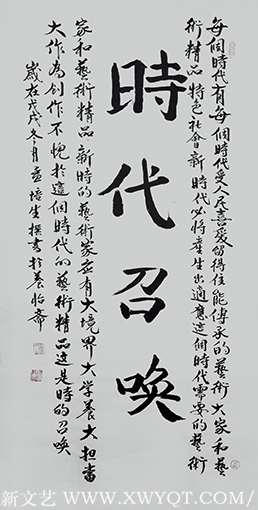 每個時代有每個時代受人民喜愛留得住能傳承的藝術大家和藝
術精品特色社會新時代必將產生出適應這個時代需要的藝術
時代召喚
家和藝術精品新時的藝術家並有大境界大學養大担當
大作為創作不愧於這個時代的藝術精品這是時的召喚
歲在戊戌冬月孟培生撰書於養怡齋
新文艺 www.XWYQT.COM